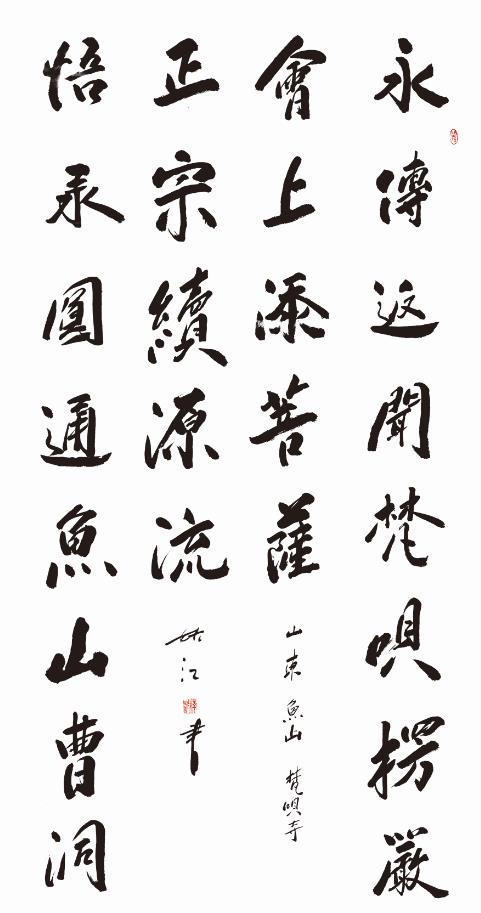 永傳返聞梵唄楞嚴
會上添菩薩
山東魚山梵唄寺
悟承圓通魚山曹洞
正宗續源流
江